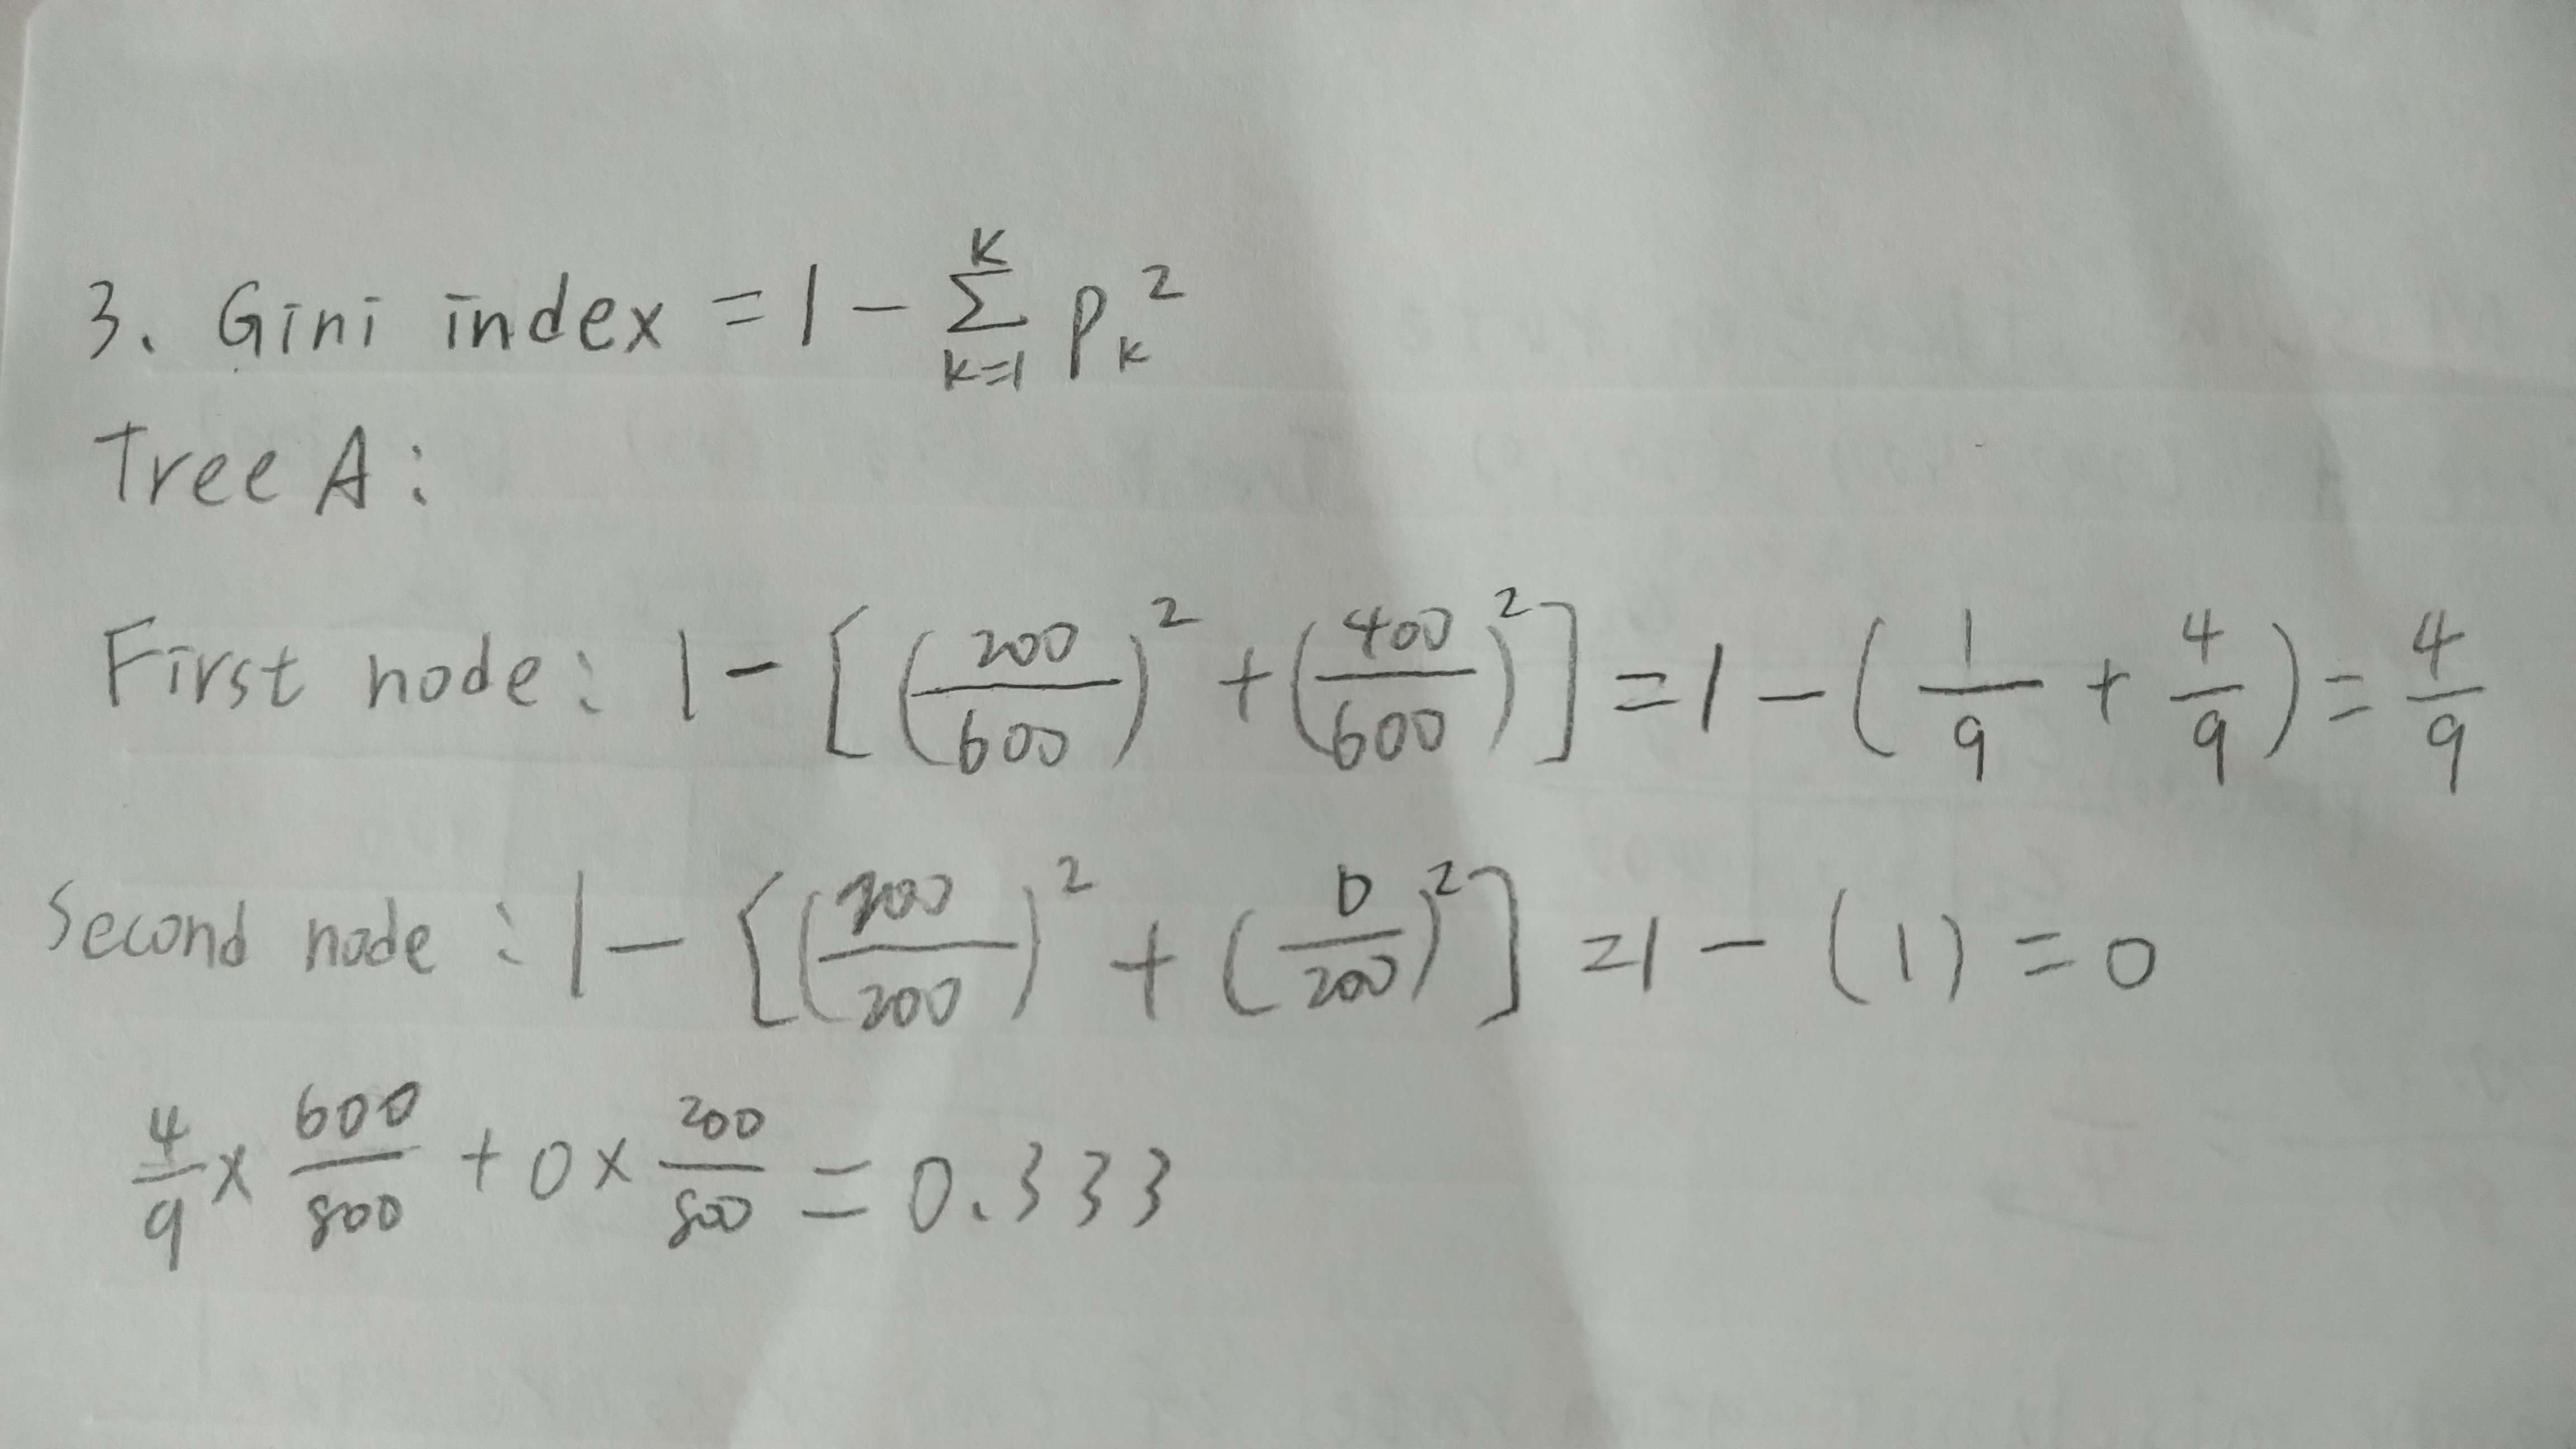 3. Gini index = 1 - \sum_{k=1}^{K} p_k^2
Tree A:
First node: 1 - [(200/600)^2 + (400/600)^2] = 1 - (1/9 + 4/9) = 4/9
Second node: 1 - [(200/200)^2 + (0/200)^2] = 1 - (1) = 0
4/9 × 600/800 + 0 × 200/800 = 0.333